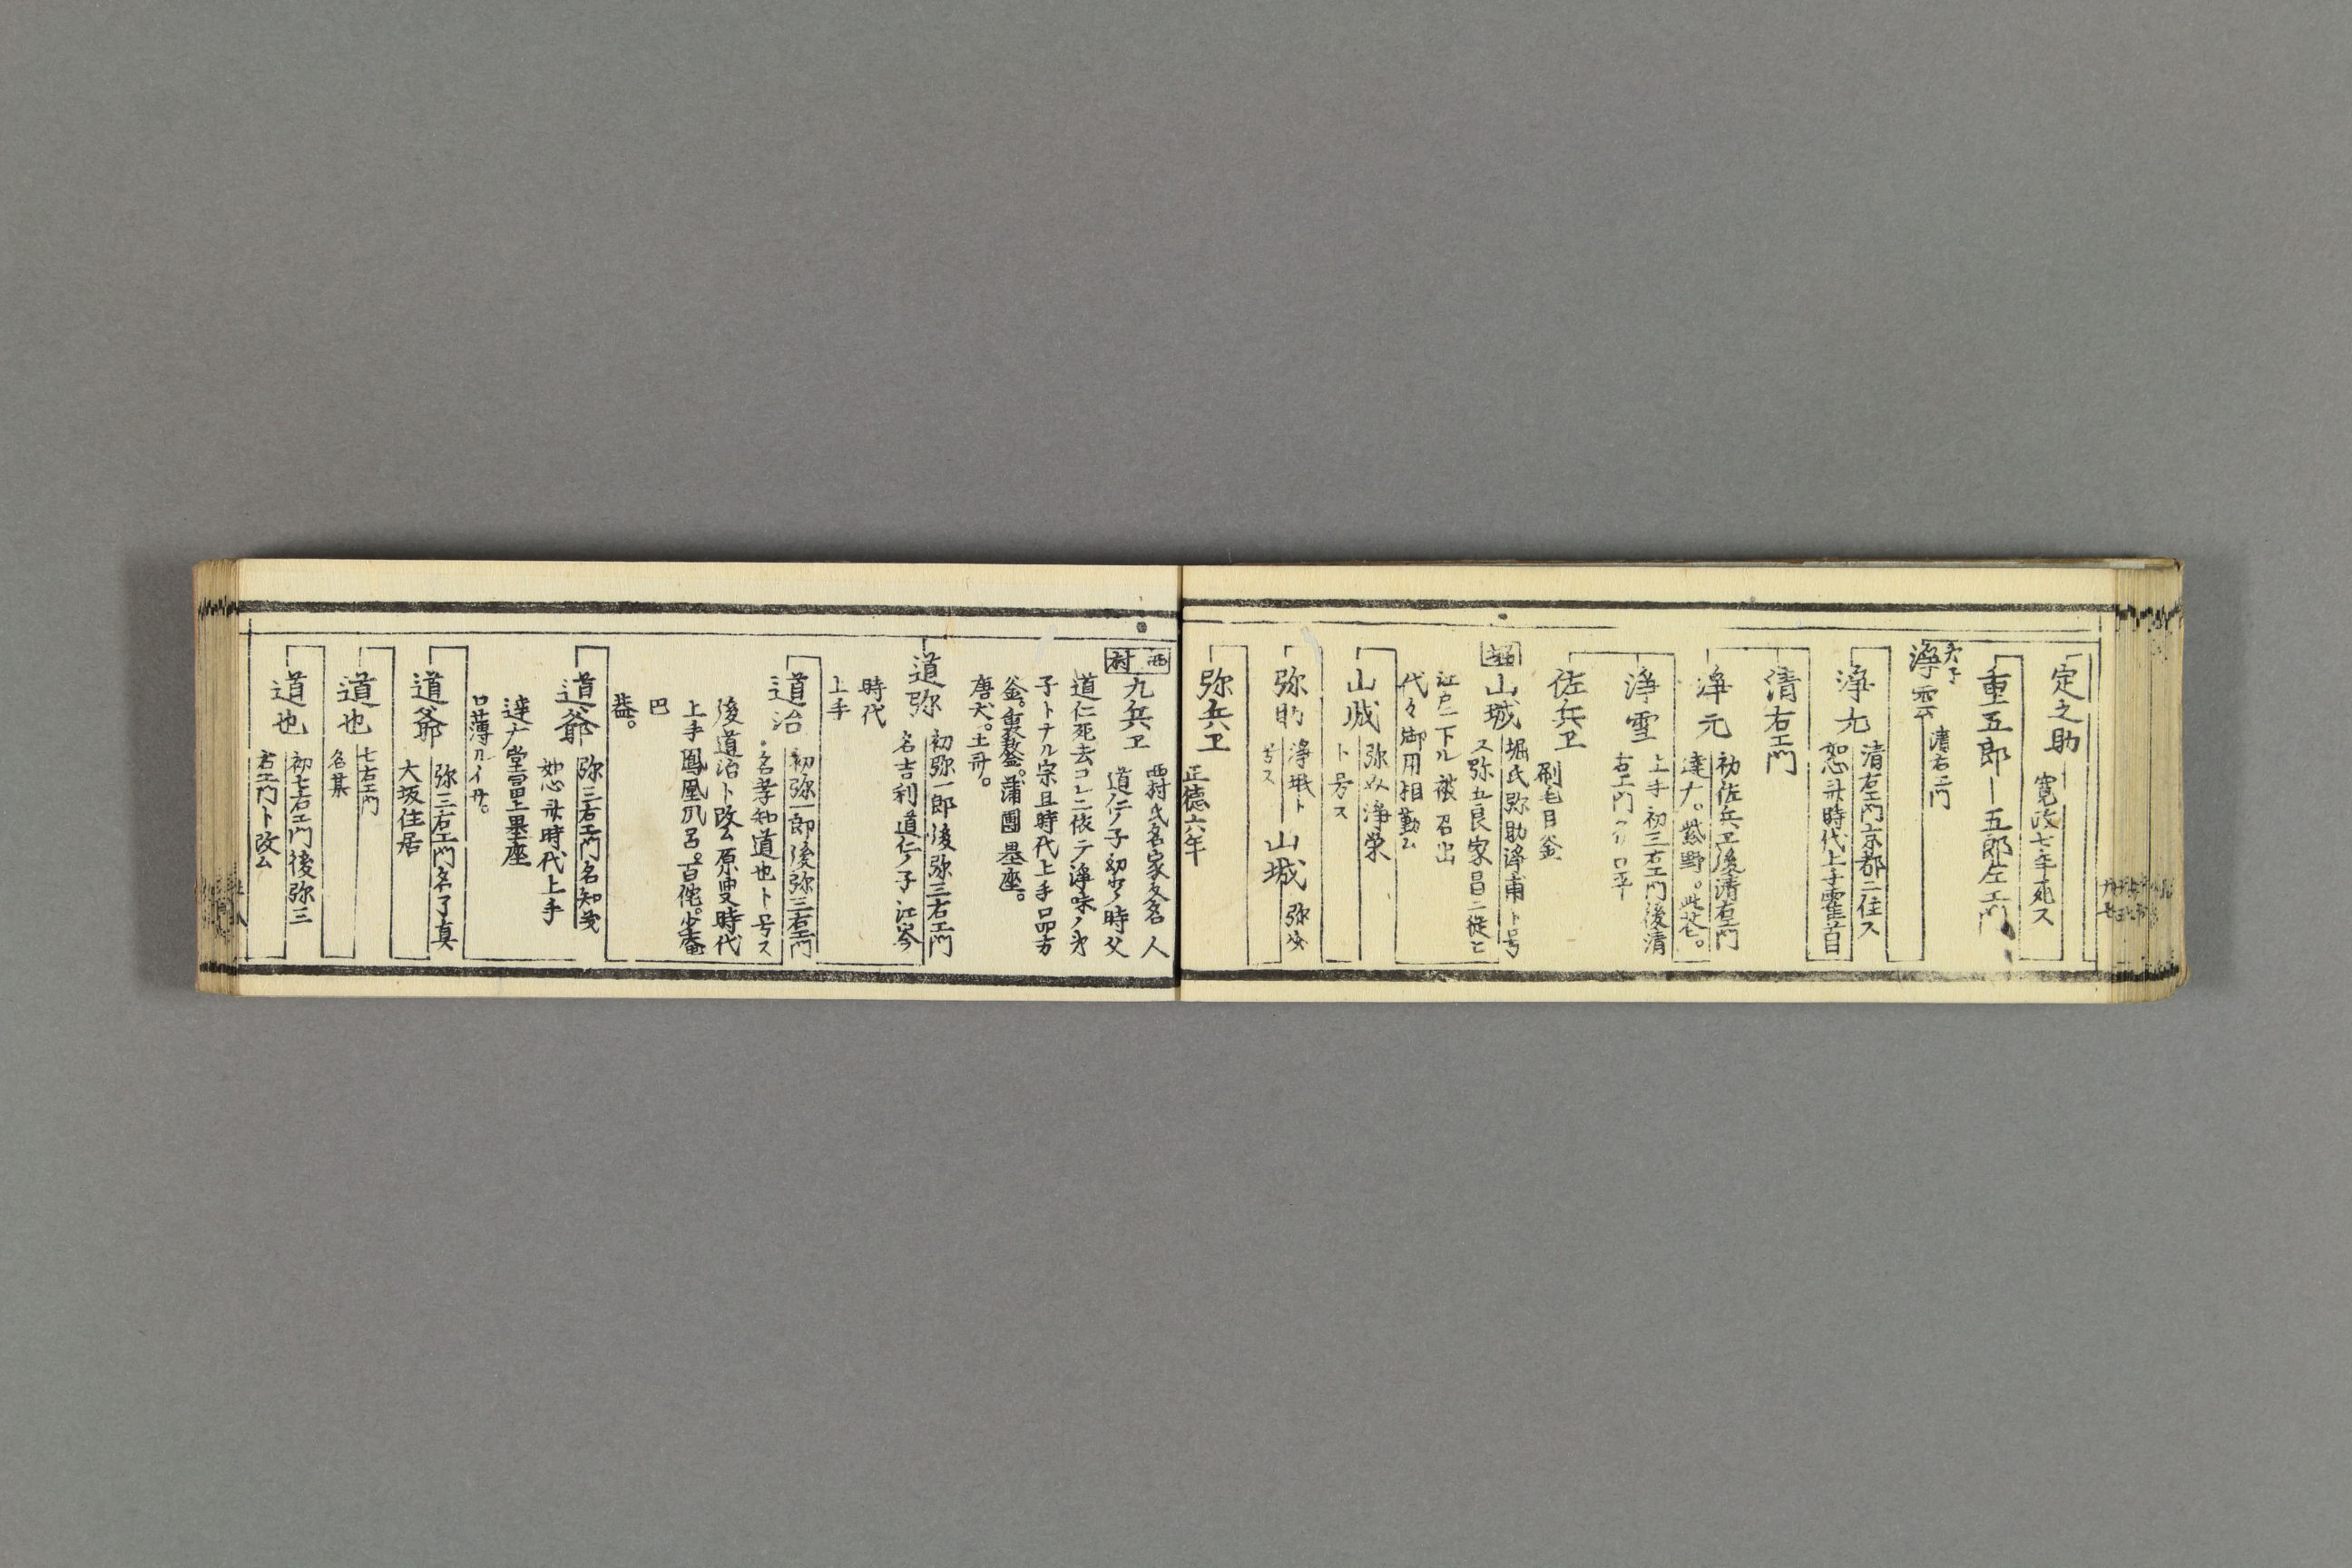 定之助
寛政七年死ス
重五郎ー五郎左エ門
浄雲
清右エ門
浄九
清右エ門京都ニ住ス
如心斎時代上手霍首
清右エ門
浄元
初佐兵ヱ後清右エ門
達ナ。紫野。
浄雪
上手初三右エ門後清
右エ門
佐兵ヱ
刷毛目釜
堀
山城
堀氏弥助浄甫ト号
ス弥五良家昌ニ従ヒ
江戸ニ下ル被召出
代々御用相勤ム
山城
浄栄
ト号ス
弥助
浄珉ト
号ス
山城
弥兵ヱ
正徳六年
西村
九兵ヱ
西村氏名家多名人
道仁ノ子幼少ノ時父
道仁死去コレニ依テ浄味ノ弟
子トナル宗旦時代上手品方
釜。蒲團墨座。
唐犬。土斎。
道弥
初弥一郎後弥三右エ門
名吉利道仁ノ子江岑
時代
上手
道治
初弥一郎後弥三右エ門
名孝知道也ト号ス
後道治ト改ム原叟時代
上手鳳凰風呂。百侘。少庵
巴
益。
道爺
弥三右エ門名知
如心斎時代上手
達ナ堂雲墨座
口薄
道爺
弥三右エ門名了真
大坂住居
道也
七右エ門
名某
道也
初七右エ門後弥三
右エ門ト改ム